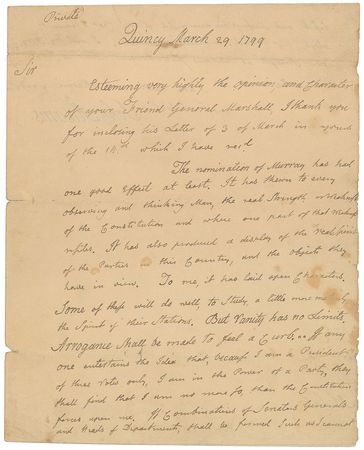 Private
Quincy March 29 1799
Sir
Esteeming very highly the opinion and Character
of your Friend General Marshall, I thank you
for inclosing his Letter of 3 of March in yours
of the 14.th which I have recd
The nomination of Murray has had
one good Effect at least. It has shewn to every
observing and thinking Man, the real Strength or Weakness
of the Constitution and where one part of that Weakness
resides. It has also produced a display of the real Spirit
of the Parties in this Country, and the objects they
have in view. To me, it has laid open Characters.
Some of these will do well, to Study, a little more
the Spirit of their Stations. But Vanity has no Limits.
Arrogance shall be made to feel a Curb. If any
one entertains the Idea that, because I am a President
of three votes only, I am in the Power of a Party, they
shall find that I am no more so, than the Constitution
forces upon me. If Combinations of Senators Generals
and Heads of Departments, shall be formed Such as I cannot